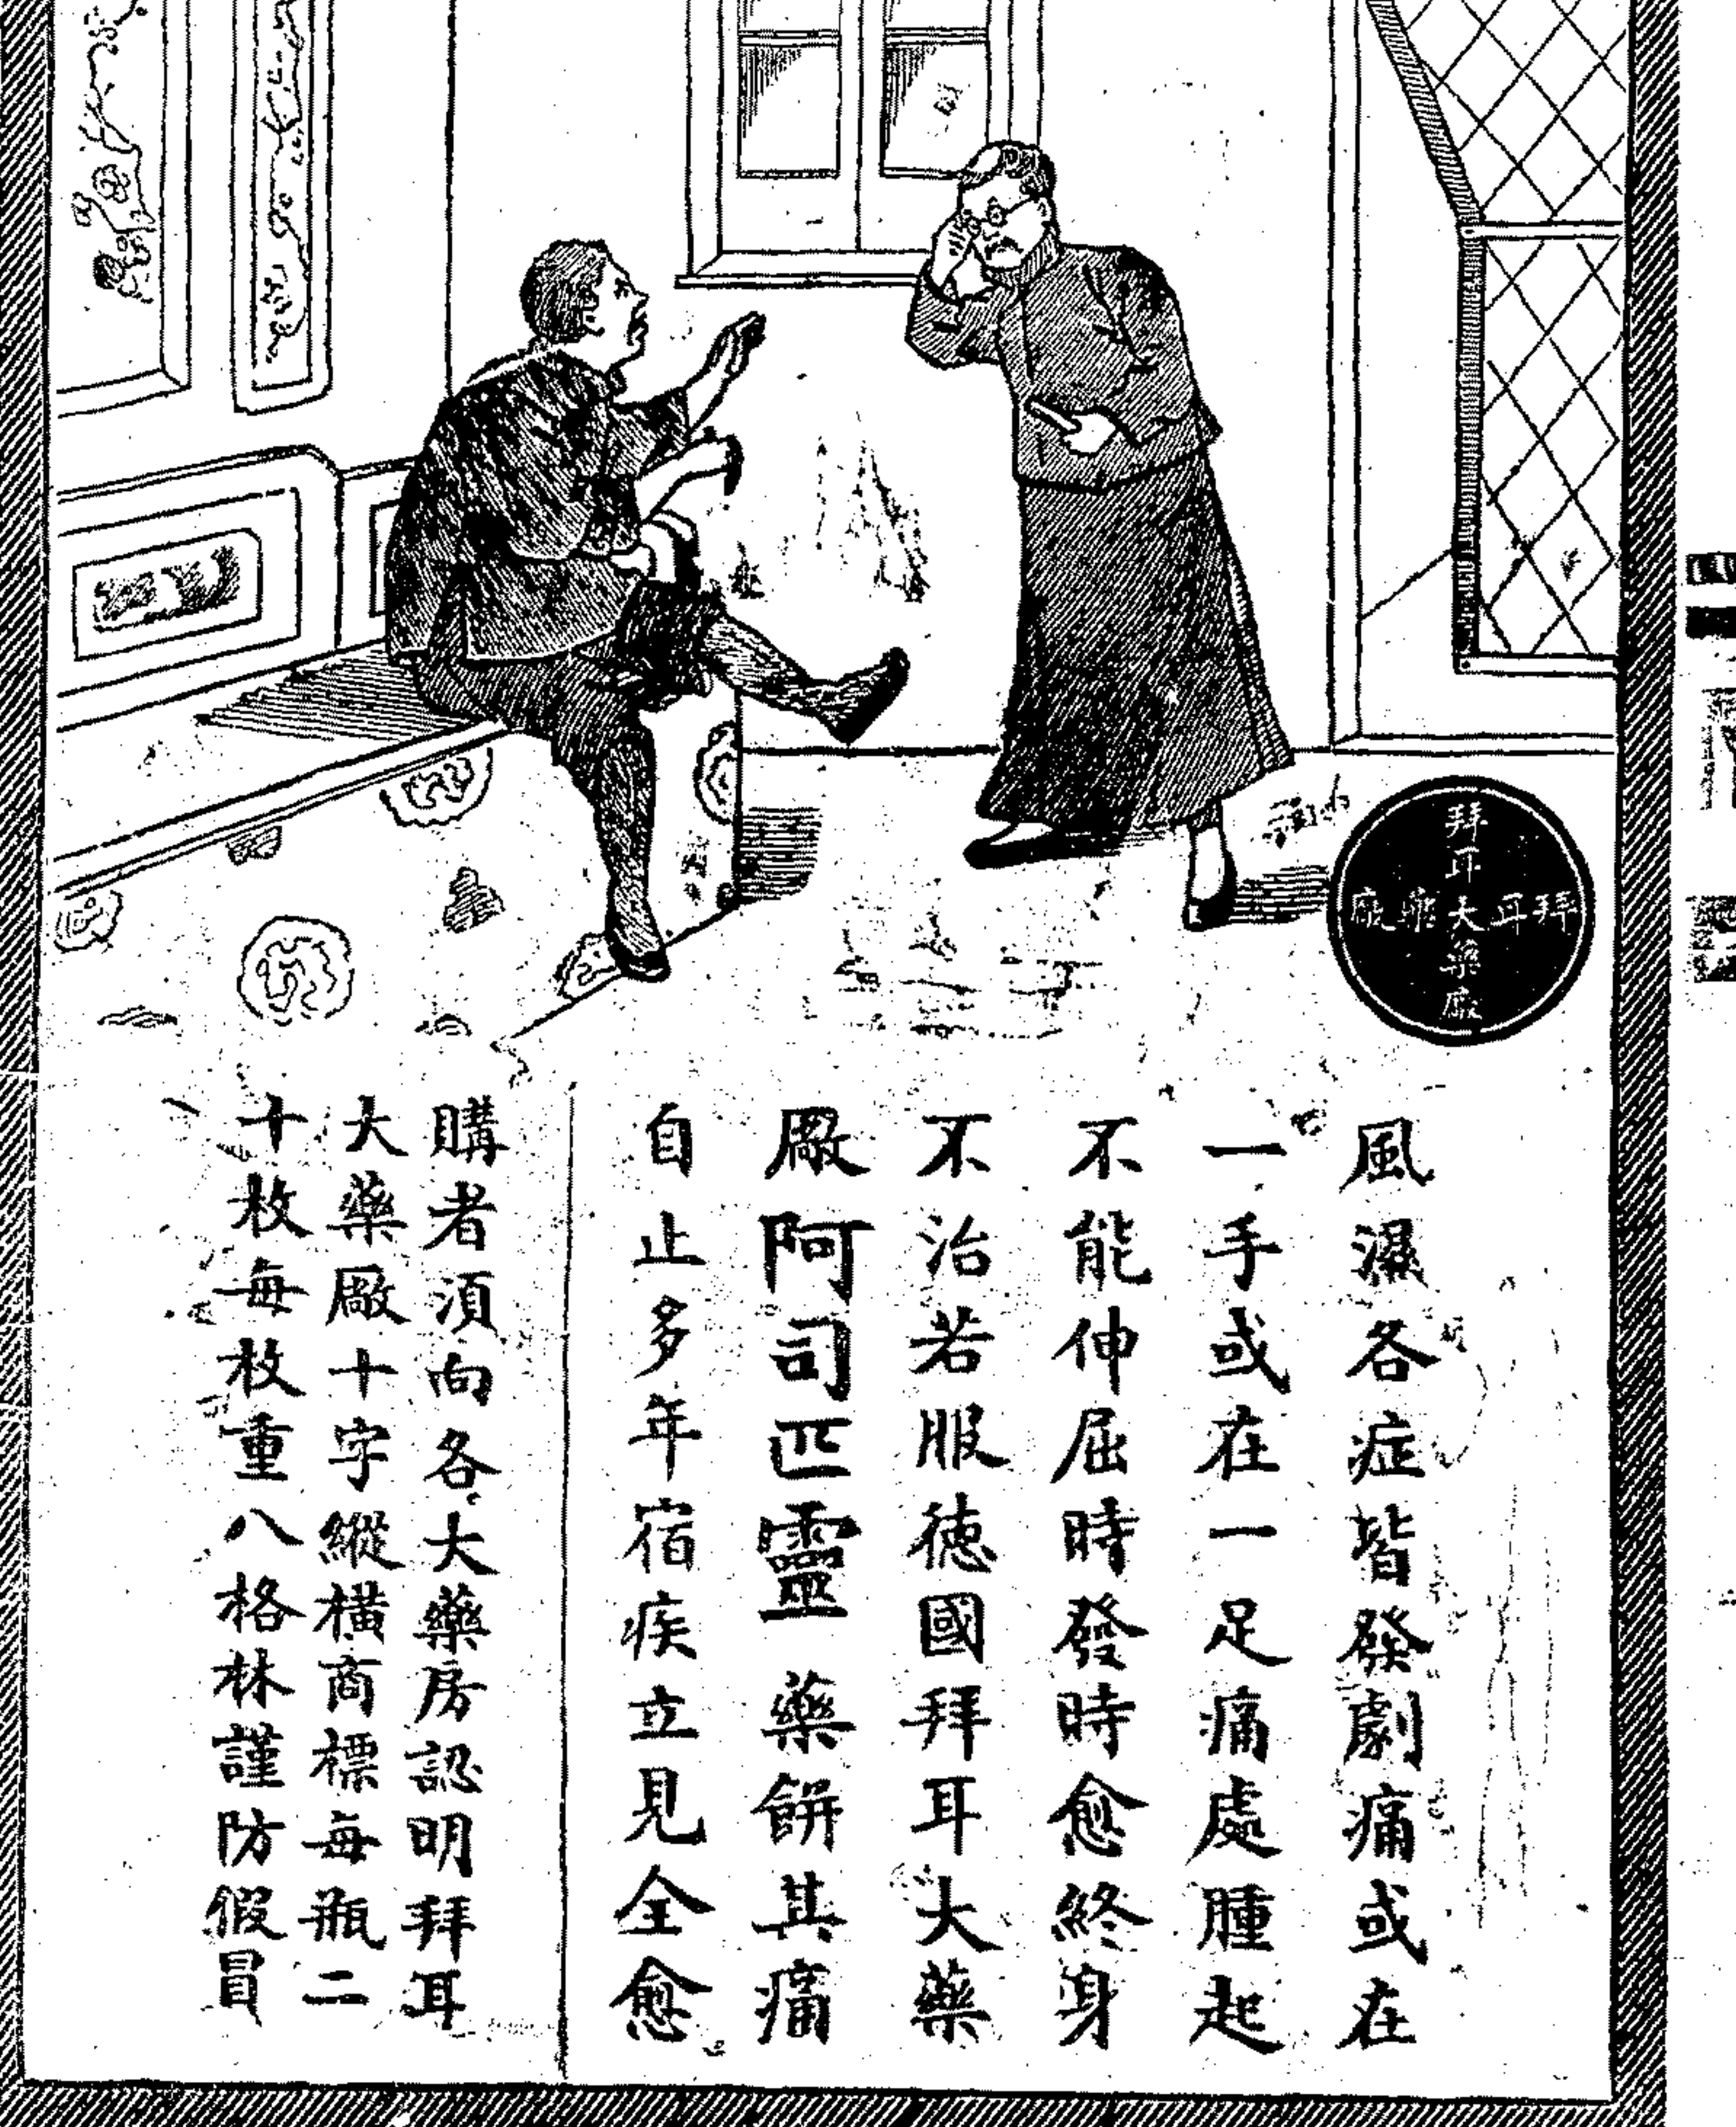 拜耳大藥廠
拜耳大藥廠
風濕各症皆發劇痛或在
一手或在一足痛處腫起
不能伸屈時發時愈終身
不治若服德國拜耳大藥
廠阿司匹靈藥餅其痛
自止多年宿疾立見全愈
購者須向各大藥房認明拜耳
大藥廠十字縱橫商標每瓶二
十枚每枚重八格林謹防假冒